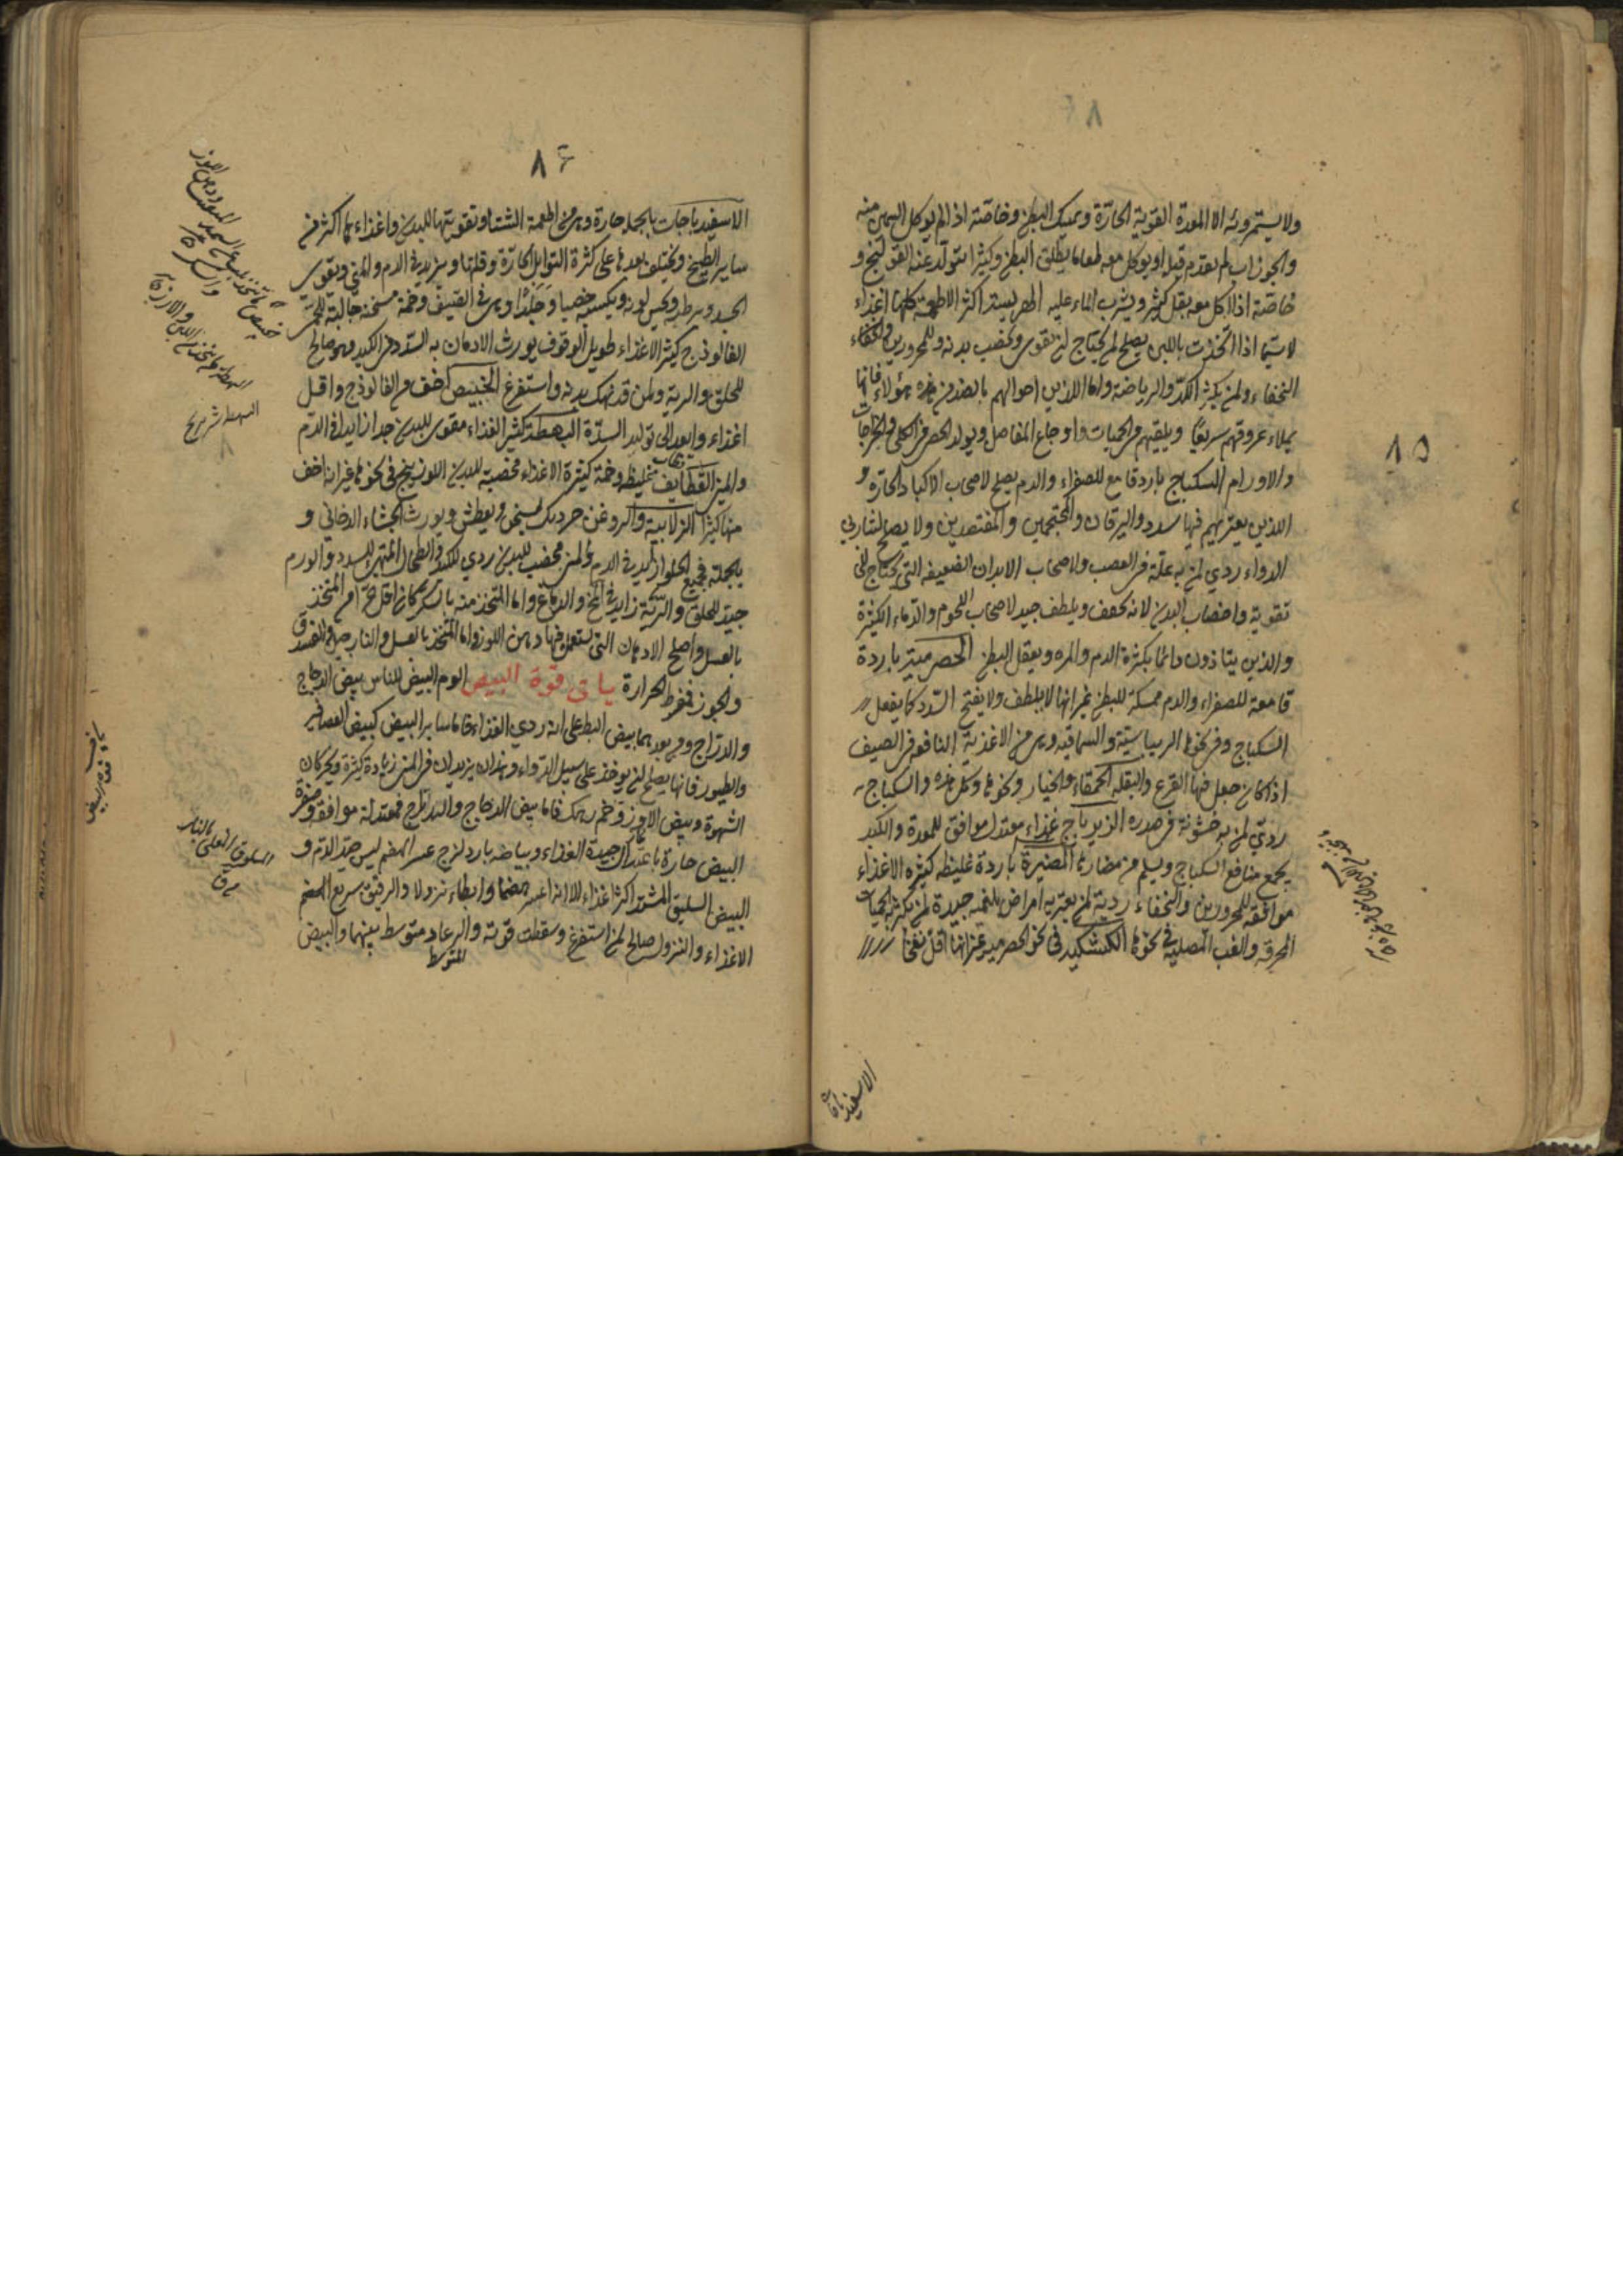 ٨٥
ولا يستمرونه الا المعدة القوية الحارة ويمسك البطن وخاصة اذا لم يوكل السمين منه
والجوزاب لم يقدم قبله او يوكل معه طعاما يطلق البطن وكثيرا يتولد عنه القولنج و
خاصة اذا اكل معه بقل كثير ويشرب الماء عليه الهريسة اكثر الاطعمة كلها اغذاء
لا سيما اذا اتخذت باللبن يصلح لمن يحتاج ان يقوى ويخصب بدنه وللمحرورين والنحفاء
النحفاء ولمن يكثر الكد والرياضة واما الذين احوالهم بالضد من هذه هؤلاء فانها
يملاء عروقهم سريعا ويلقيهم في الحميات واوجاع المفاصل ويولد الحصى في الكلى والخراجات
والاورام السكباج بارد قامع للصفراء والدم يصلح لاصحاب الاكباد الحارة و
الذين يعتريهم فيها سدد واليرقان والمحتجمين والمفتصدين ولا يصلح لشاربي
الدواء ردي لمن به علة في العصب ولاصحاب الابدان الضعيفة التي تحتاج الى
تقوية واخصاب البدن لانه يجفف ويلطف جيد لاصحاب اللحوم والدماء الكثيرة
والذين يتاذون دائما بكثرة الدم والمره ويعقل البطن الحصرمية باردة
قامعة للصفراء والدم ممسكة للبطن غير انها لا يلطف ولا يفتح السدد كما يفعل
السكباج وفي نحوها الريباسية والسماقيه وهي من الاغذية النافعه في الصيف
اذا كان جعل فيها القرع والبقلة الحمقاء والخيار ونحوها وكل هذه والسكباج
ردي لمن به خشونة في صدره الزيرباج غذاء معتدل موافق للمعدة والكبد
يجمع منافع السكباج ويسلم من مضاره المضيرة باردة غليظه كثيره الاغذاء
موافقة للمحرورين والنحفاء ردية لمن يعتريه امراض بلغمية جيدة لمن يكثر به الحميات
المحرقة والغب المصلية في نحوها الكشكية في نحو الحصرمية غير انها اقل نفخا
الاسفيدباجات
٨٦
الاسفيدباجات بالجملة حارة وهي من اطعمة الشتاء وتقويتها للبدن واغذاءها اكثر من
ساير الطبيخ ويختلف بعدها على كثرة التوابل الحارة وقلتها ويزيد في الدم والمني ويقوي
الجسد ويرطبه ويحسن لونه ويكسبه خصبا وجلدا وهي في الصيف وخمة مسخنة جالبة للحمى
الفالوذج كثير الاغذاء طويل الوقوف يورث الادمان به السدد في الكبد وهو صالح
للحلق والرية ولمن قد نهك بدنه واستفرغ الخبيص اخف من الفالوذج واقل
اغذاء وابعد الى توليد السدة البهطة كثير الغذاء مقوي للبدن جدا زايد في الدم
والمني القطايف غليظة وخمة كثيرة الاغذاء مخصبة للبدن اللوزينج في نحوها غير انه اخف
منها كثيرا الزلابية والروغن حردبك يسخن ويعطش ويورث الجشاء الدخاني و
بالجملة فجميع الحلوا زايد في الدم والمني مخصب للبدن ردي للكبد والطحال الملتهب للسدد والورم
جيد للحلق والرئة زايد في المخ والدماغ واما المتخذ منه بالسكر كان اقل حرا من المتخذ
بالعسل واصلح الادهان التي يستعمل فيها دهن اللوز واما المتخذ بالعسل والنارجيل والفستق
والجوز فمفرط الحرارة ياتى قوة البيض الوم البيض للناس بيض الدجاج
والدراج ومن بعدهما بيض البط على انه ردي الغذاء فاما ساير البيض كبيض العصافير
والطيور فانها يصلح لمن يوخذ على سبيل الدواء وهذان يزيدان في المني زيادة كثيرة ويحركان
الشهوة وبيض الاوز وخم زهك فاما بيض الدجاج والدراج فمعتدلة موافقة وصفرة
البيض حارة باعتدال جيدة الغذاء وبياضه بارد لزج عسر الهضم ليس جيد الدم و
البيض السليق المشتد اكثر اغذاء الا انه اعسر هضما وابطاء نزولا والرقيق سريع الهضم
الاغذاء والنزول صالح لمن استفرغ وسقطت قوته والرعاد متوسط بينهما والبيض